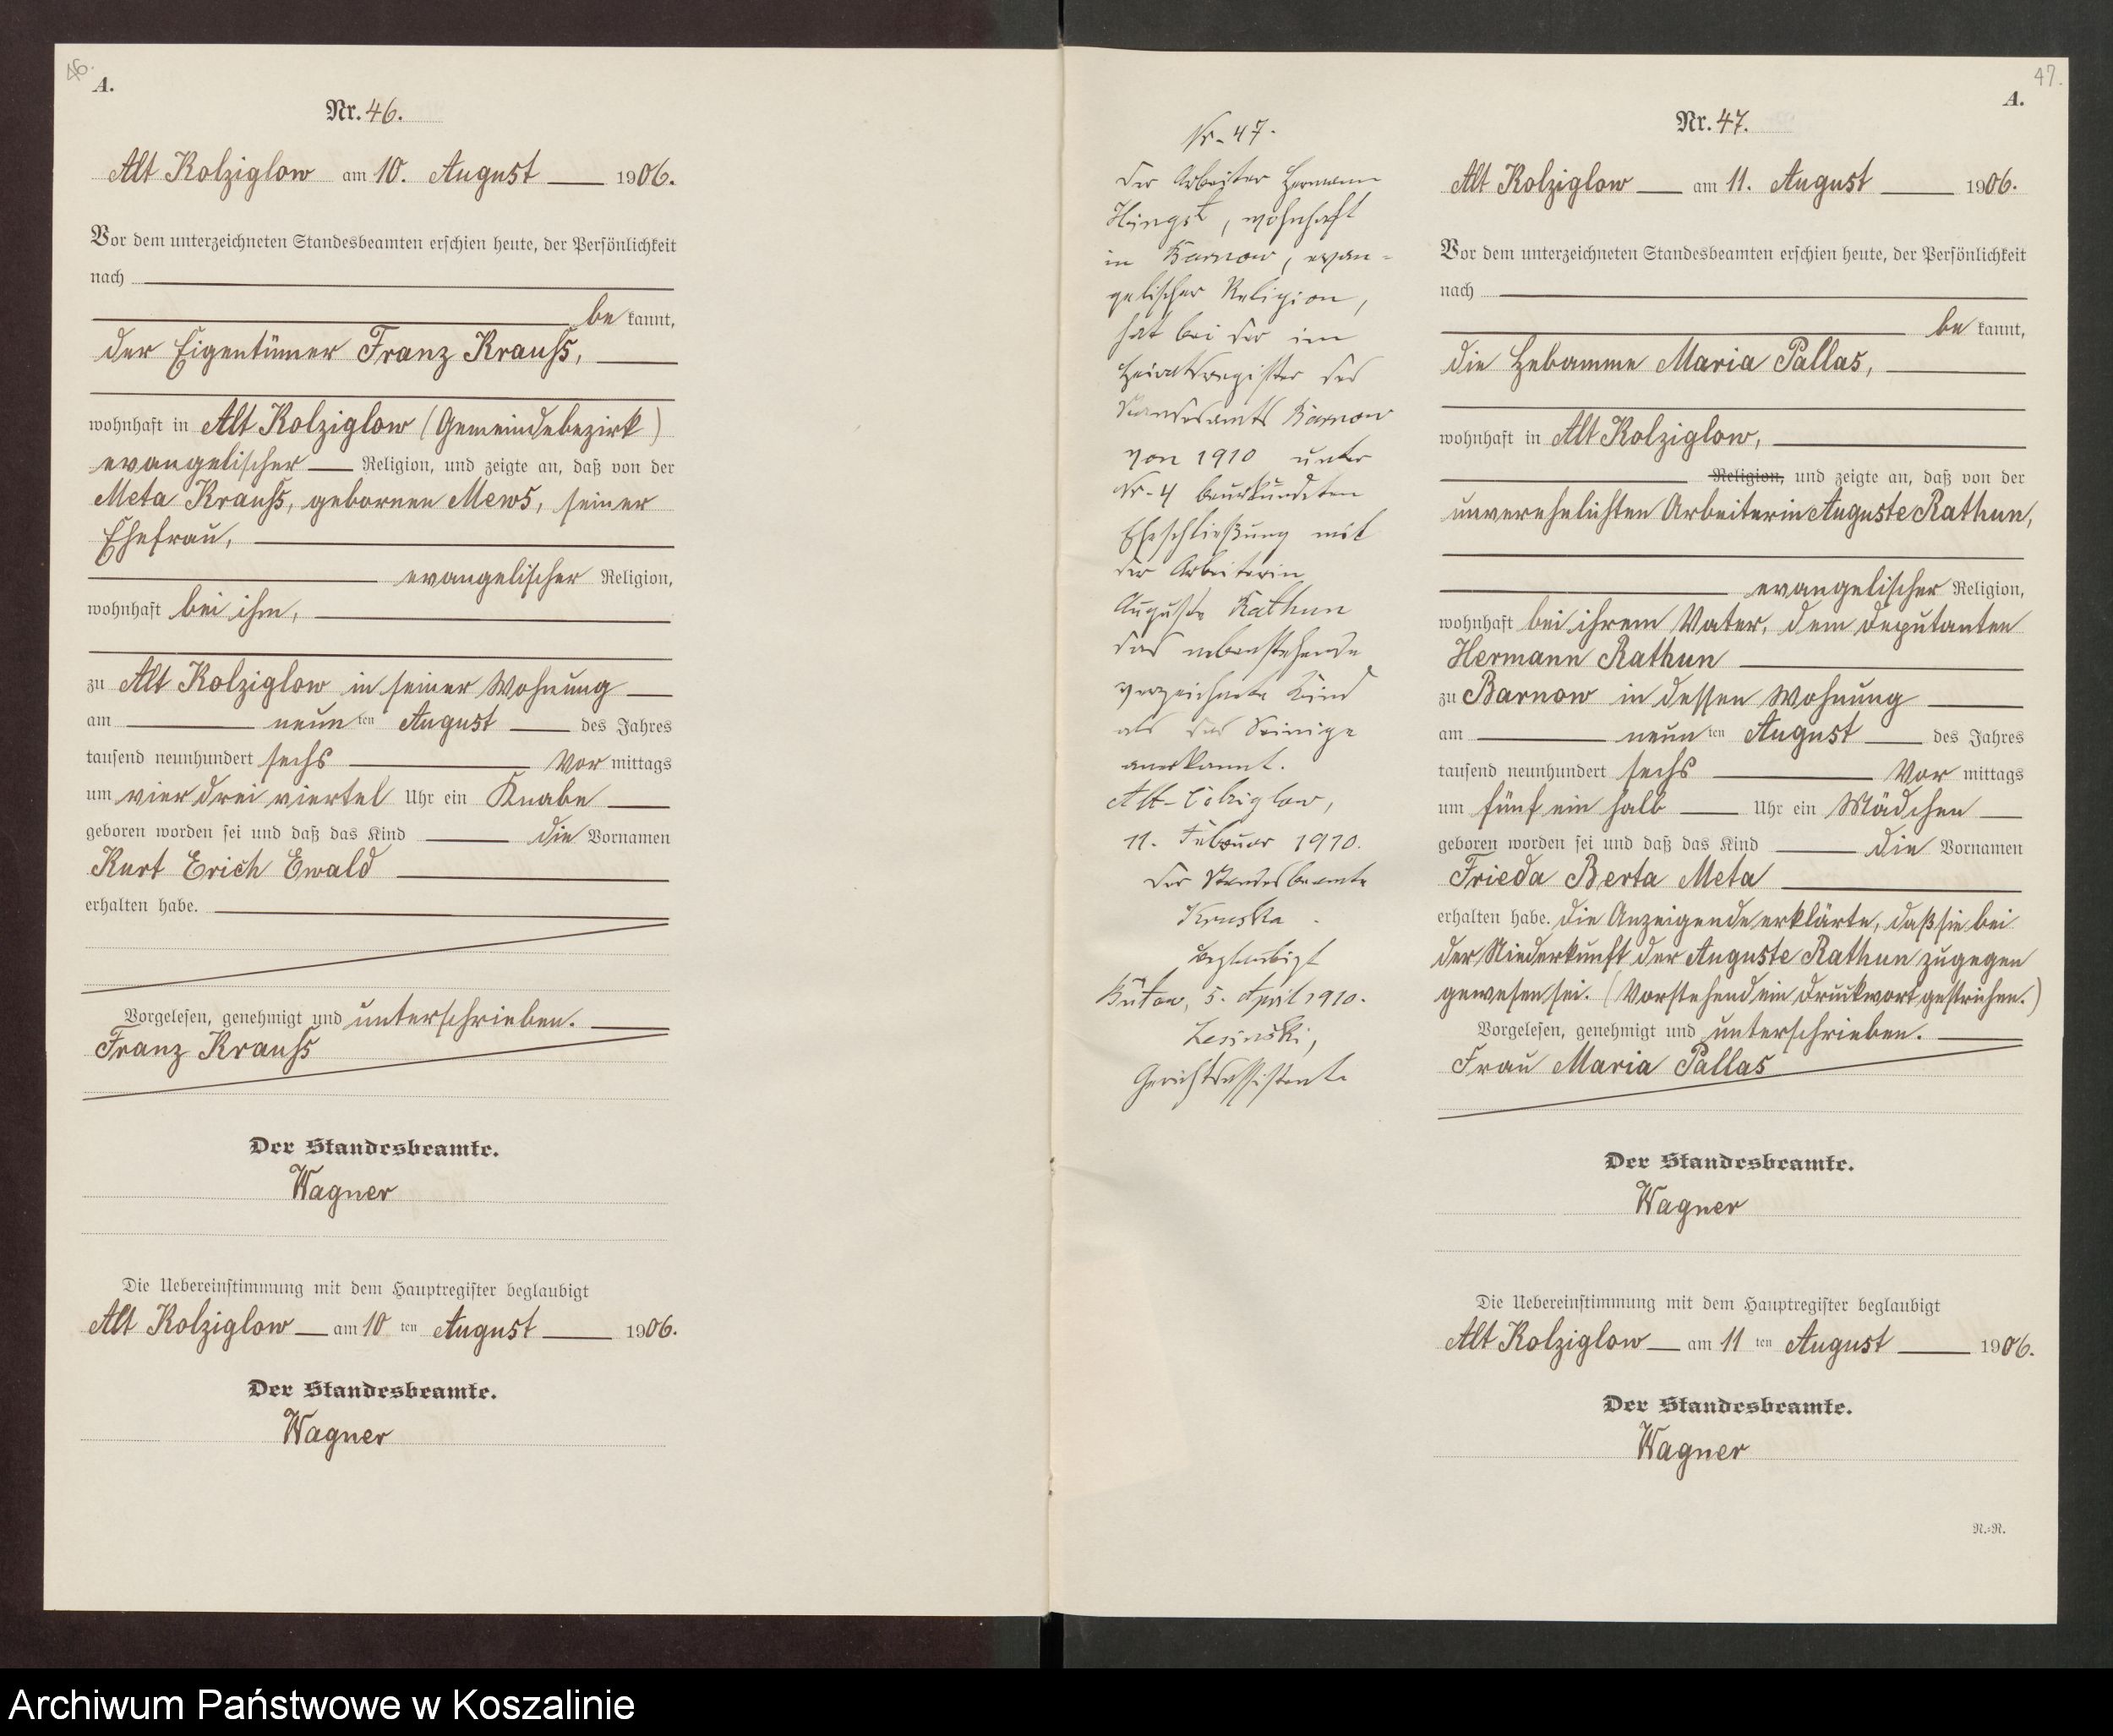 46.
A.
Nr. 46.
Alt Kolziglow am 10. August 1906.
Vor dem unterzeichneten Standesbeamten erschien heute, der Persönlichkeit
nach
be kannt,
der Eigentümer Franz Krauss,
wohnhaft in Alt Kolziglow (Gemeindebezirk)
evangelischer Religion, und zeigte an, daß von der
Meta Krauss, gebornen Mews, seiner
Ehefrau,
evangelischer Religion,
wohnhaft bei ihm,
zu Alt Kolziglow in seiner Wohnung
am neun ten August des Jahres
tausend neunhundert sechs Vor mittags
um vier drei viertel Uhr ein Knabe
geboren worden sei und daß das Kind die Vornamen
Kurt Erich Ewald
erhalten habe.
Vorgelesen, genehmigt und unterschrieben.
Franz Krauss
Der Standesbeamte.
Wagner
Die Uebereinstimmung mit dem Hauptregister beglaubigt
Alt Kolziglow am 10 ten August 1906.
Der Standesbeamte.
Wagner
Nr. 47.
Der Arbeiter Hermann
Hingst, wohnhaft
in Barnow, evan-
gelischer Religion,
hat bei der im
Heiratsregister des
Standesamts Barnow
von 1910 unter
Nr. 4 beurkundeten
Eheschließung mit
der Arbeiterin
Auguste Rathun
das nebenstehende
verzeichnete Kind
als das Seinige
anerkannt.
Alt-Colziglow,
11. Februar 1910.
Der Standesbeamte
Kruska.
beglaubigt
Bütow, 5. April 1910.
Lesinski,
Gerichtsassistent
47.
A.
Nr. 47.
Alt Kolziglow am 11. August 1906.
Vor dem unterzeichneten Standesbeamten erschien heute, der Persönlichkeit
nach
be kannt,
die Hebamme Maria Pallas,
wohnhaft in Alt Kolziglow,
Religion, und zeigte an, daß von der
unverehelichten Arbeiterin Auguste Rathun,
evangelischer Religion,
wohnhaft bei ihrem Vater, dem Deputanten
Hermann Rathun
zu Barnow in dessen Wohnung
am neun ten August des Jahres
tausend neunhundert sechs Vor mittags
um fünf ein halb Uhr ein Mädchen
geboren worden sei und daß das Kind die Vornamen
Frieda Berta Meta
erhalten habe. Die Anzeigende erklärte, daß sie bei
der Niederkunft der Auguste Rathun zugegen
gewesen sei. (Vorstehend ein Druckwort gestrichen.)
Vorgelesen, genehmigt und unterschrieben.
Frau Maria Pallas
Der Standesbeamte.
Wagner
Die Uebereinstimmung mit dem Hauptregister beglaubigt
Alt Kolziglow am 11 ten August 1906.
Der Standesbeamte.
Wagner
N.=R.
Archiwum Państwowe w Koszalinie